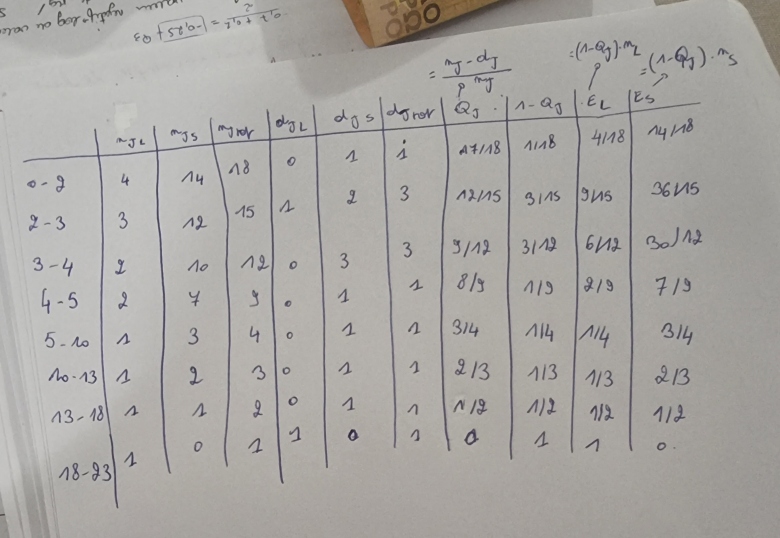 OGO
PO
= (nJ - dJ) / nJ
=(1-QJ)·nL
=(1-QJ)·nS
nJL nJS nJTOT dJL dJS dJTOT QJ 1-QJ EL ES
0-2 4 14 18 0 1 1 17/18 1/18 4/18 14/18
2-3 3 12 15 1 2 3 12/15 3/15 9/15 36/15
3-4 2 10 12 0 3 3 9/12 3/12 6/12 30/12
4-5 2 7 9 0 1 1 8/9 1/9 2/9 7/9
5-10 1 3 4 0 1 1 3/4 1/4 1/4 3/4
10-13 1 2 3 0 1 1 2/3 1/3 1/3 2/3
13-18 1 1 2 0 1 1 1/2 1/2 1/2 1/2
18-23 1 0 1 1 0 1 0 1 1 0